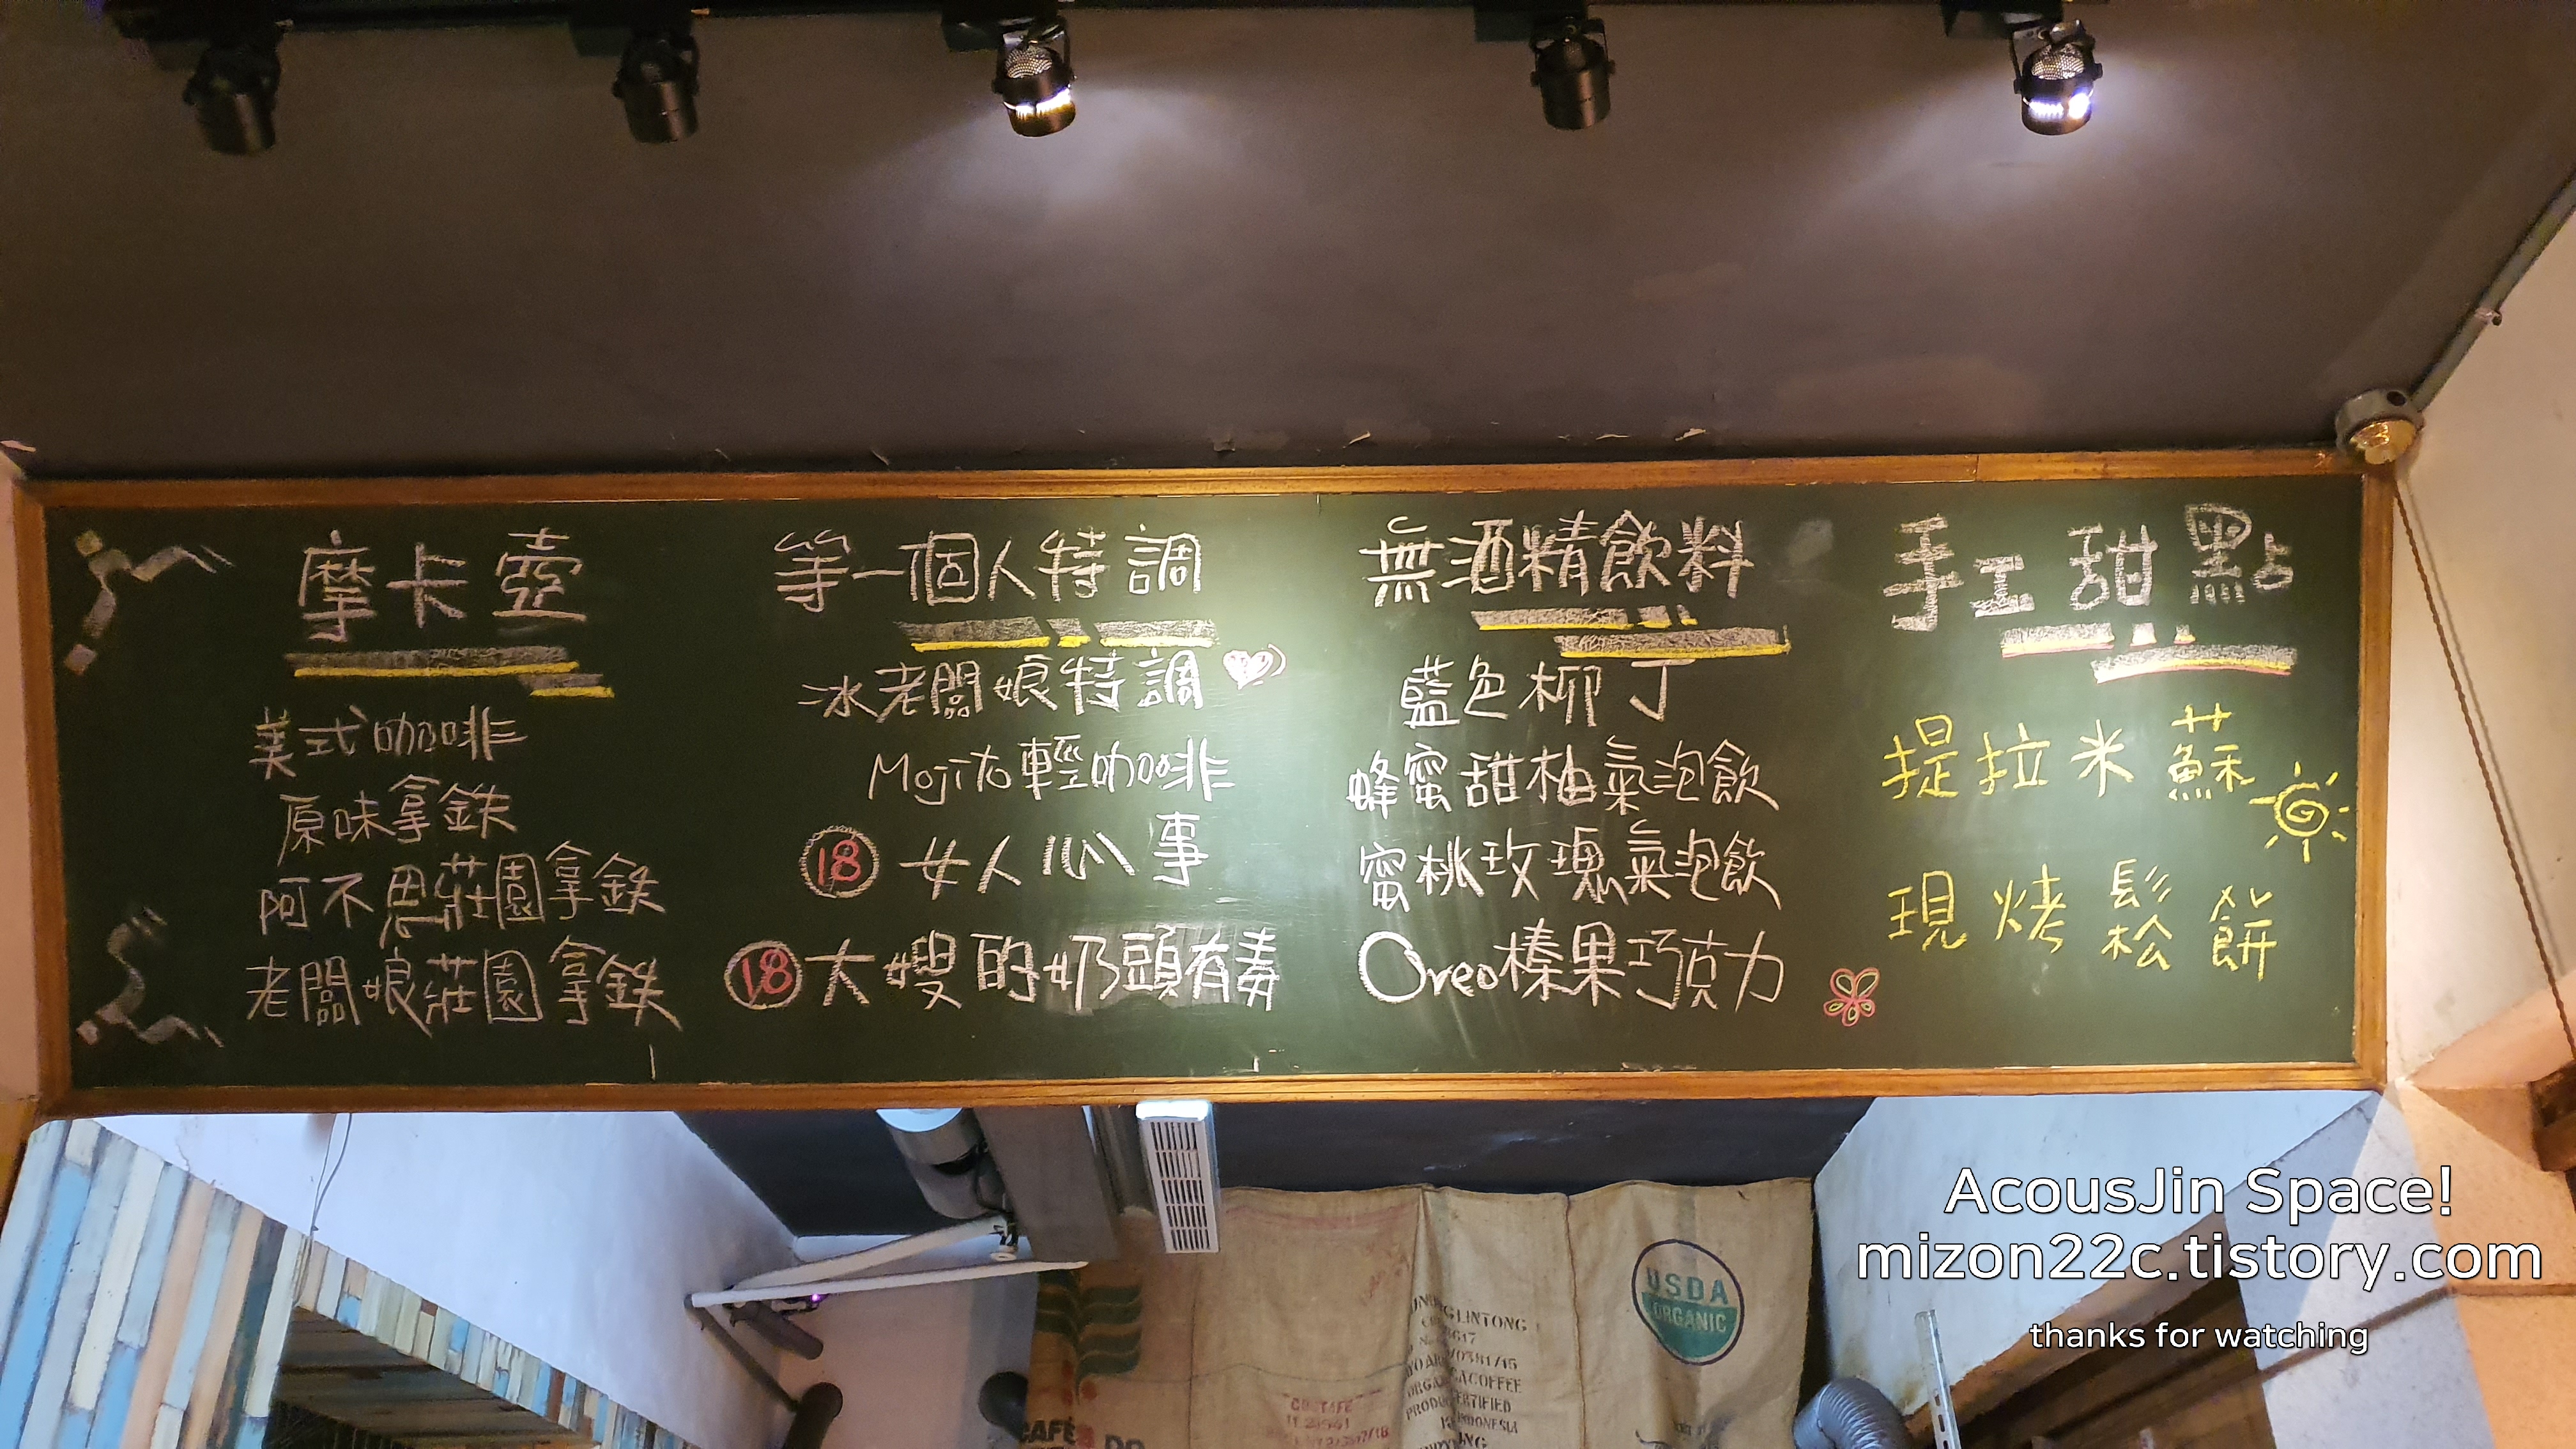 摩卡壺
美式咖啡
原味拿鉄
阿不思莊園拿鉄
老闆娘莊園拿鉄
等一個人特調
冰老闆娘特調
Mojito輕咖啡
18 女人心事
18 大嫂的奶頭有毒
無酒精飲料
藍色柳丁
蜂蜜甜柚氣泡飲
蜜桃玫瑰氣泡飲
Oreo榛果巧克力
手工甜點
提拉米蘇
現烤鬆餅
USDA
ORGANIC
LINTONG
COFFEE
INDONESIA
CAFÉ
AcousJin Space!
mizon22c.tistory.com
thanks for watching